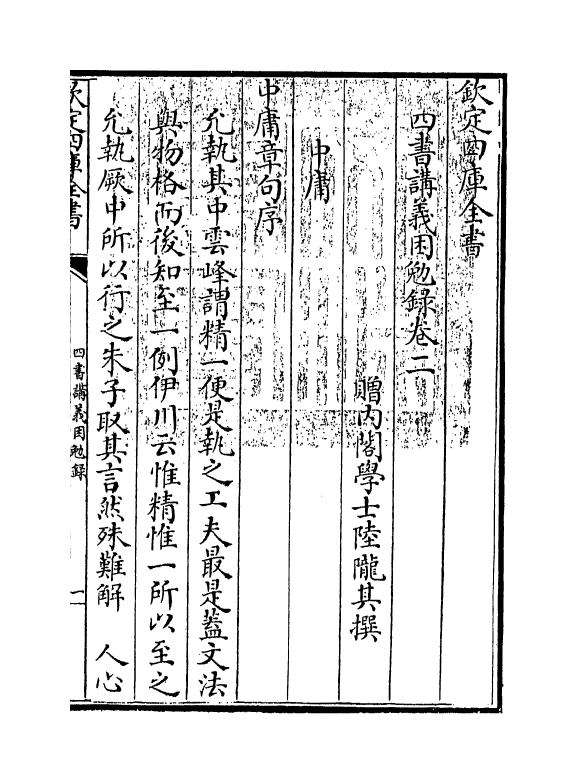 欽定四庫全書
四書講義困勉錄卷二
贈內閣學士陸隴其撰
中庸
中庸章句序
允執其中雲峰謂精一便是執之工夫最是蓋文法
與物格而後知至一例伊川云惟精惟一所以至之
允執厥中所以行之朱子取其言然殊難解　人心
欽定四庫全書
四書講義困勉錄
一